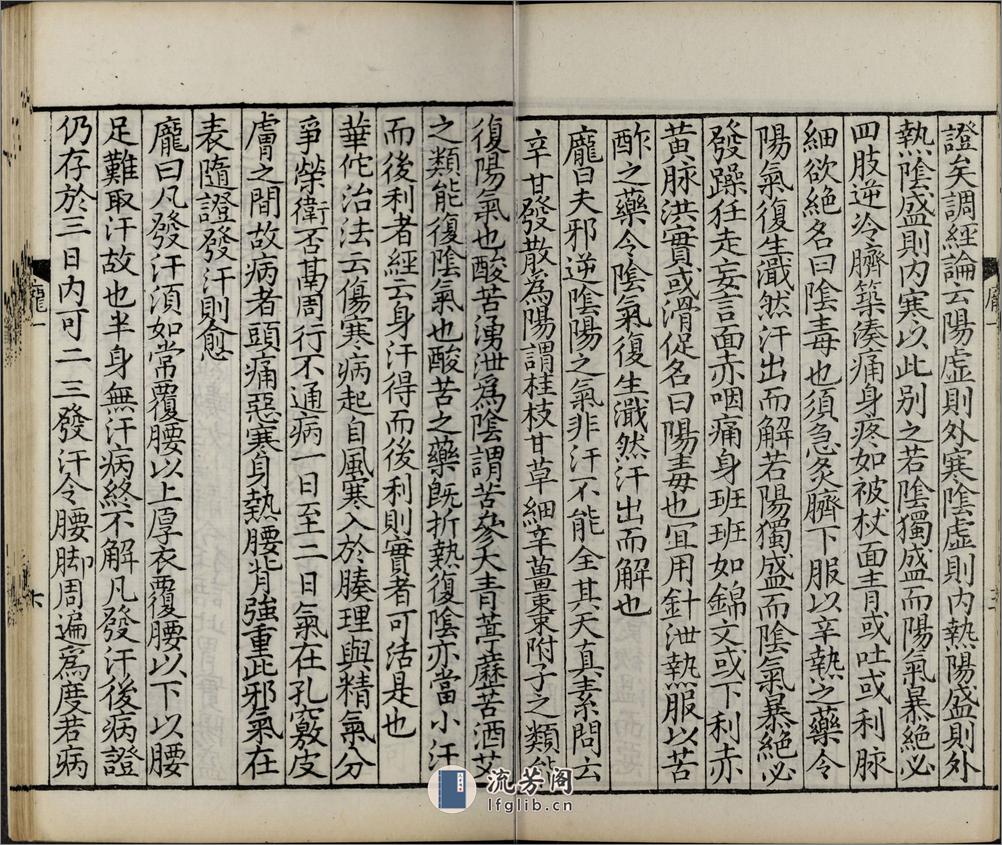 證矣調經論云陽虛則外寒陰虛則內熱陽盛則外
熱陰盛則內寒以此別之若陰獨盛而陽氣暴絕必
四肢逆冷臍築湊痛身疼如被杖面青或吐或利脉
細欲絕名曰陰毒也須急灸臍下服以辛熱之藥令
陽氣復生濈然汗出而解若陽獨盛而陰氣暴絕必
發躁狂走妄言面赤咽痛身班班如錦文或下利赤
黃脉洪實或滑促名曰陽毒也宜用針泄熱服以苦
酢之藥令陰氣復生濈然汗出而解也
龐曰夫邪逆陰陽之氣非汗不能全其天真素問云
辛甘發散為陽謂桂枝甘草細辛薑棗附子之類能
復陽氣也酸苦湧泄為陰謂苦參大青葶藶苦酒艾
之類能復陰氣也酸苦之藥旣折熱復陰亦當小汗
而後利者經云身汗得而後利則實者可活是也
華佗治法云傷寒病起自風寒入於腠理與精氣分
爭榮衛否鬲周行不通病一日至二日氣在孔竅皮
膚之間故病者頭痛惡寒身熱腰背強重此邪氣在
表隨證發汗則愈
龐曰凡發汗須如常覆腰以上厚衣覆腰以下以腰
足難取汗故也半身無汗病終不解凡發汗後病證
仍存於三日內可二三發汗令腰脚周遍為度若病
龐一
流芳阁
lfglib.cn